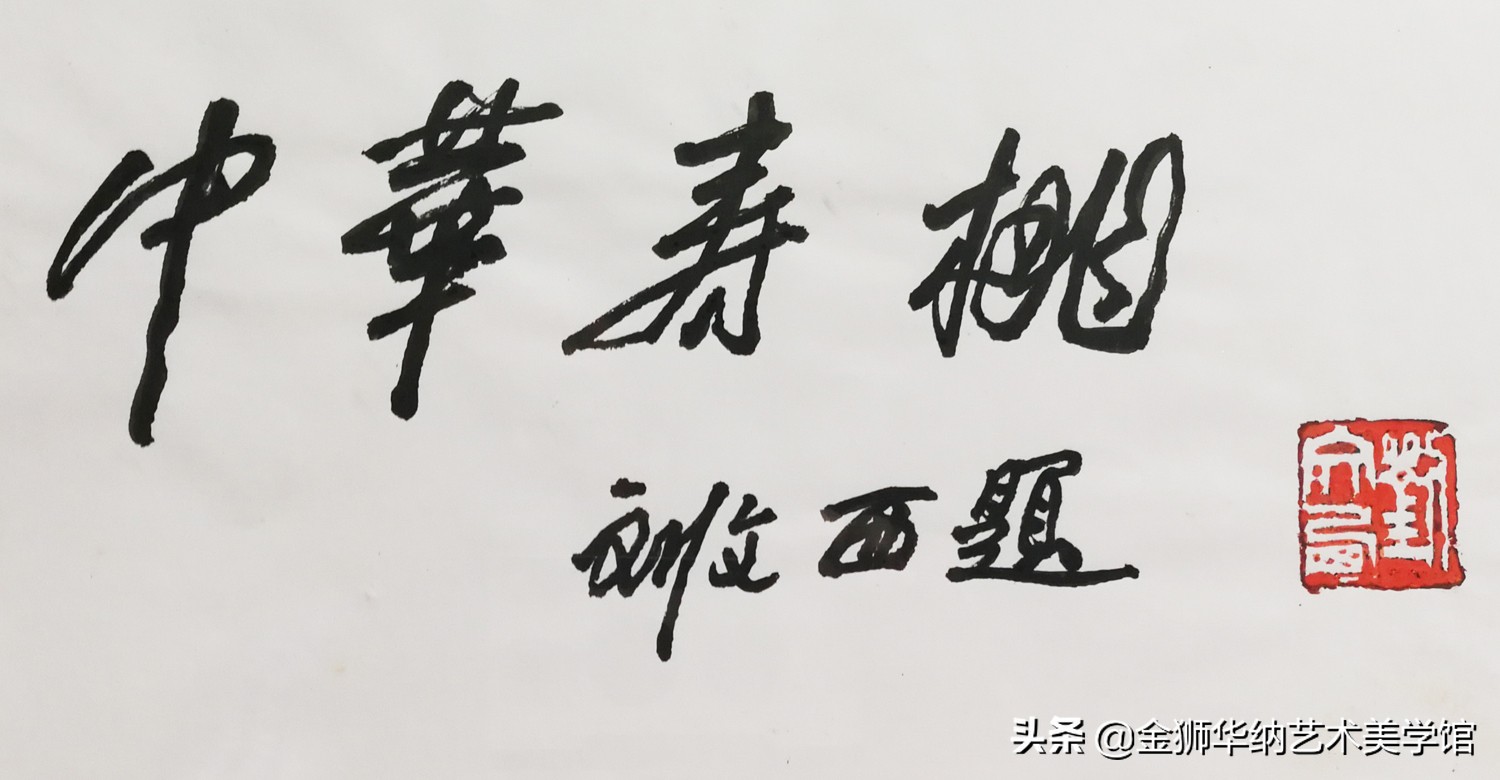 中華寿桃
刘文西题
劉文西
头条 @金狮华纳艺术美学馆